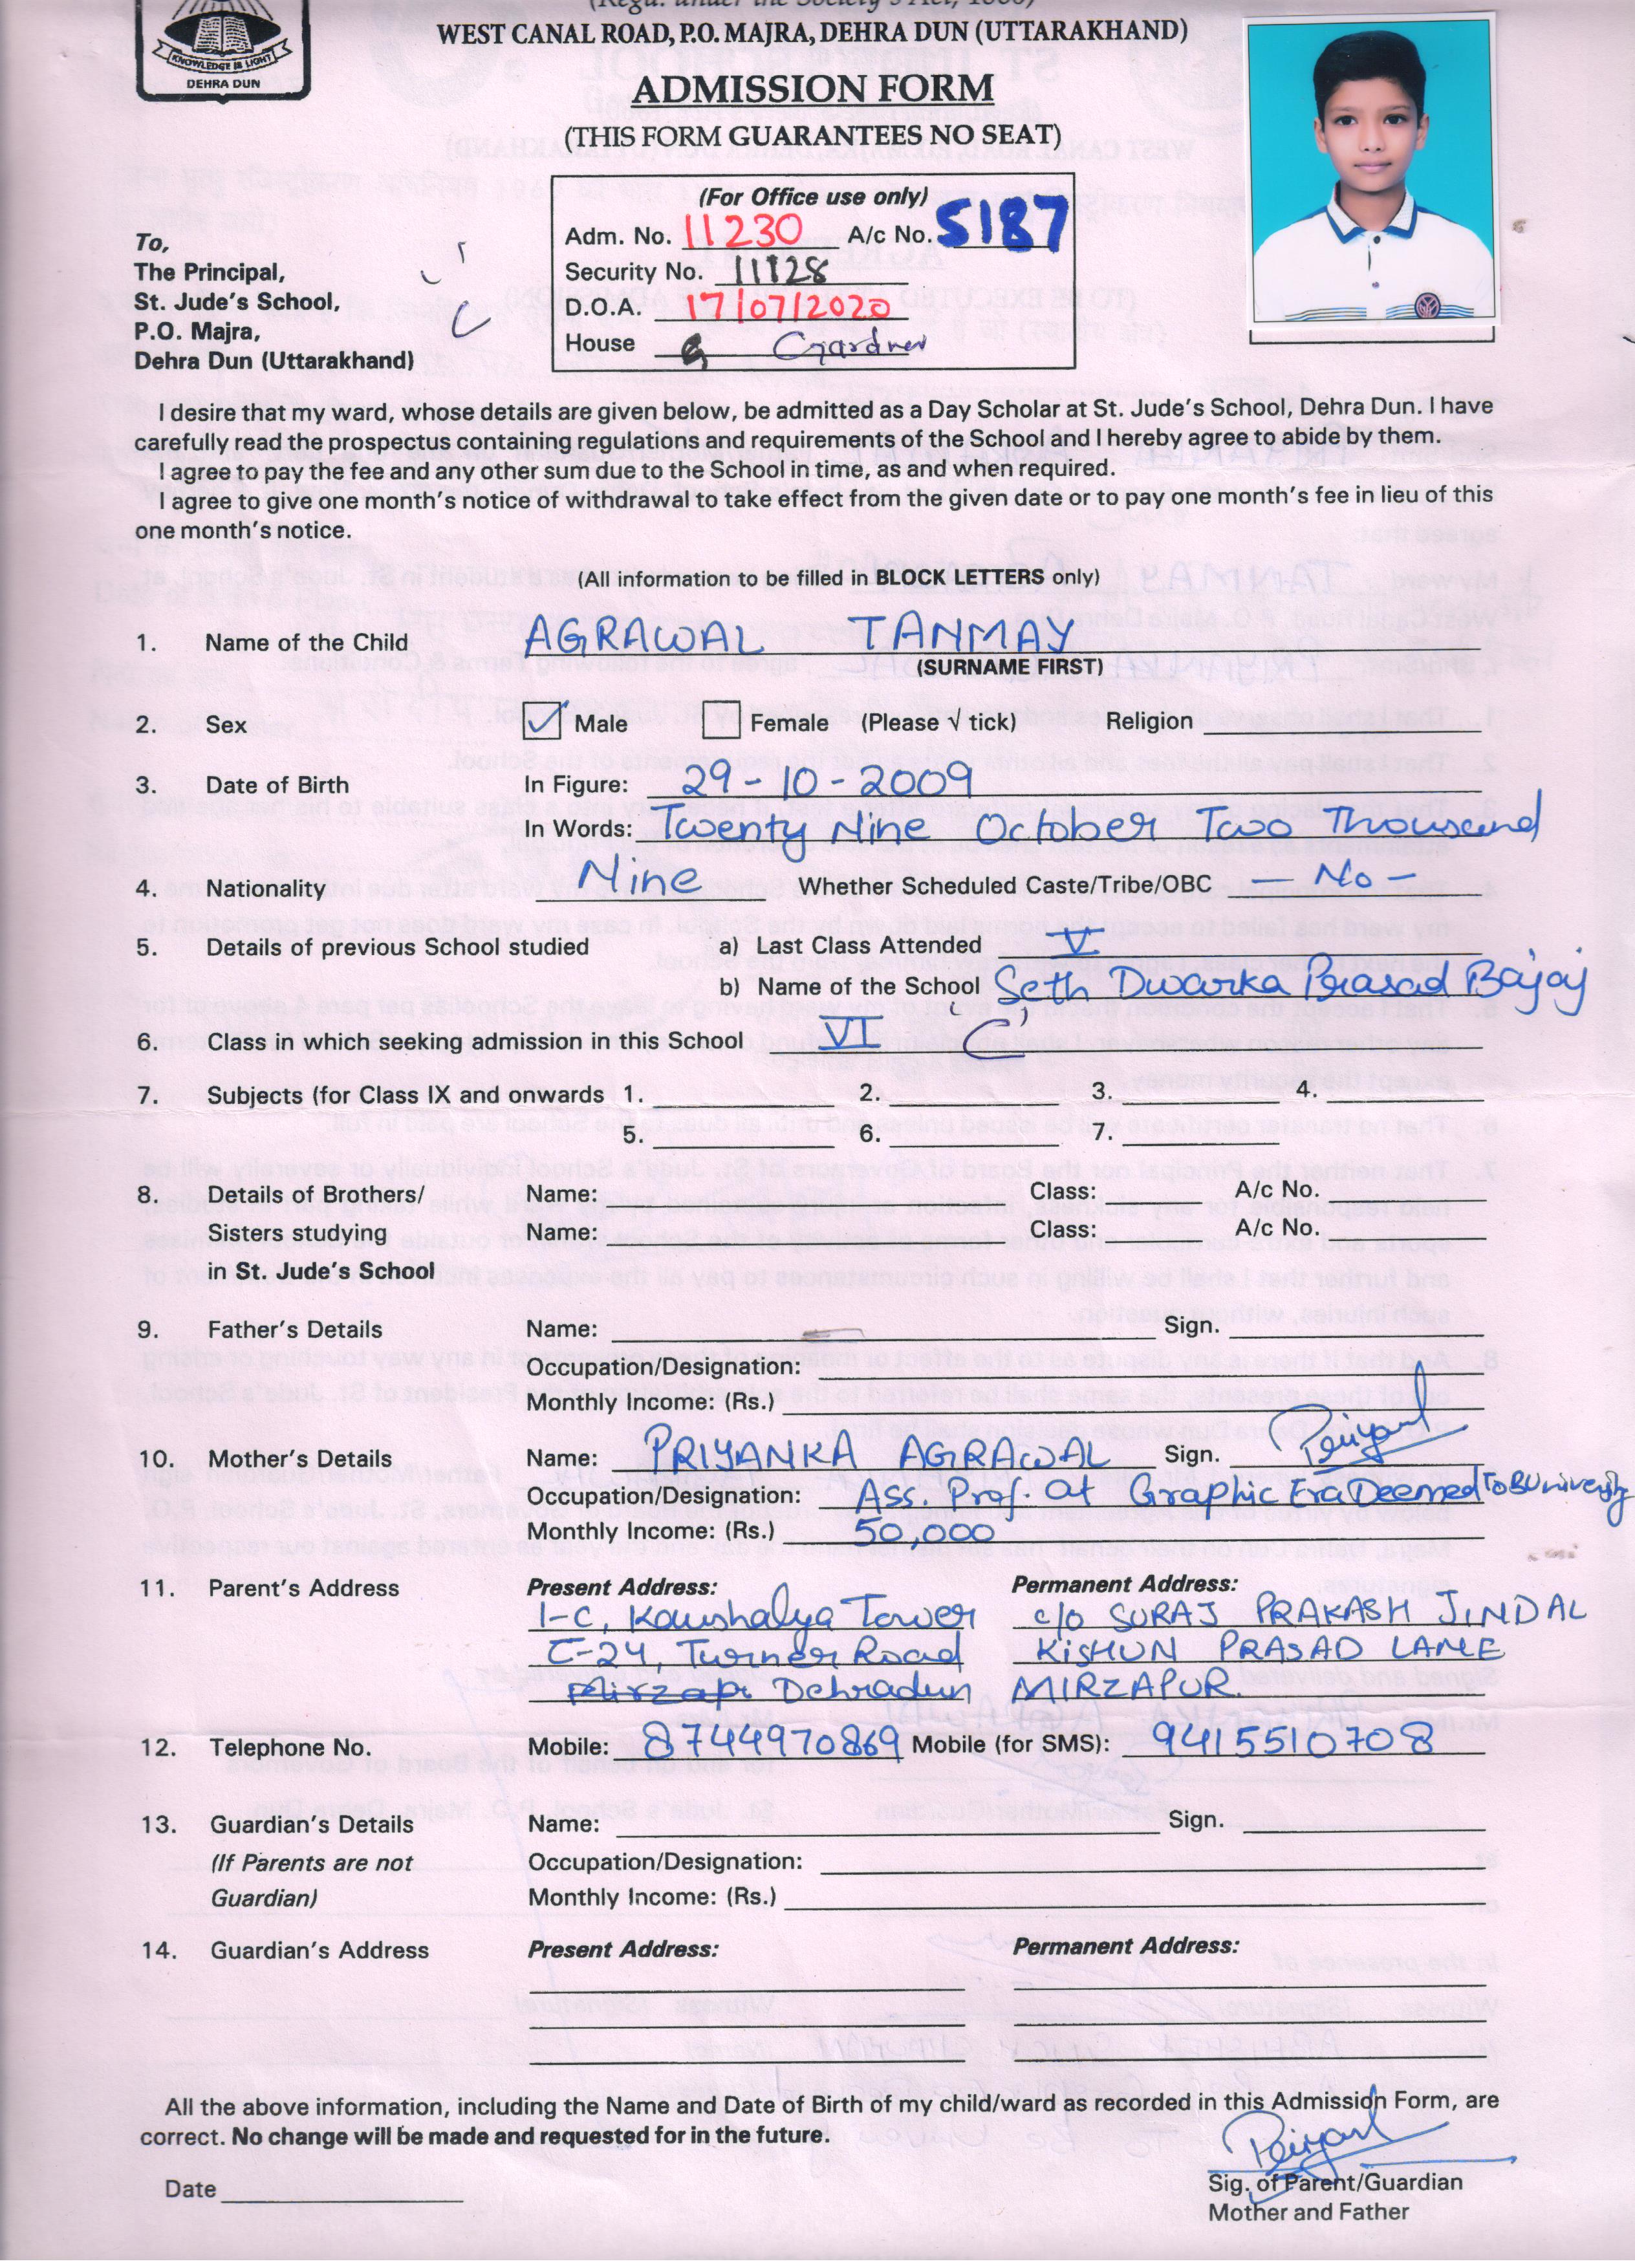 (Regd. under the Society's Act, 1860)
WEST CANAL ROAD, P.O. MAJRA, DEHRA DUN (UTTARAKHAND)
KNOWLEDGE IS LIGHT
DEHRA DUN
ADMISSION FORM
(THIS FORM GUARANTEES NO SEAT)
(For Office use only)
Adm. No. 11230 A/c No. 5187
Security No. 11128
D.O.A. 17/07/2020
House G Gardner
To,
The Principal,
St. Jude's School,
P.O. Majra,
Dehra Dun (Uttarakhand)
I desire that my ward, whose details are given below, be admitted as a Day Scholar at St. Jude's School, Dehra Dun. I have
carefully read the prospectus containing regulations and requirements of the School and I hereby agree to abide by them.
I agree to pay the fee and any other sum due to the School in time, as and when required.
I agree to give one month's notice of withdrawal to take effect from the given date or to pay one month's fee in lieu of this
one month's notice.
(All information to be filled in BLOCK LETTERS only)
1. Name of the Child AGRAWAL TANMAY
(SURNAME FIRST)
2. Sex Male Female (Please √ tick) Religion
3. Date of Birth In Figure: 29-10-2009
In Words: Twenty Nine October Two Thousand
Nine
4. Nationality Whether Scheduled Caste/Tribe/OBC — No —
5. Details of previous School studied a) Last Class Attended V
b) Name of the School Seth Dwarka Prasad Bajaj
6. Class in which seeking admission in this School VI 'C'
7. Subjects (for Class IX and onwards 1. 2. 3. 4.
5. 6. 7.
8. Details of Brothers/ Name: Class: A/c No.
Sisters studying Name: Class: A/c No.
in St. Jude's School
9. Father's Details Name: Sign.
Occupation/Designation:
Monthly Income: (Rs.)
10. Mother's Details Name: PRIYANKA AGRAWAL Sign.
Occupation/Designation: Ass. Prof. at Graphic Era Deemed To B University
Monthly Income: (Rs.) 50,000
11. Parent's Address Present Address: Permanent Address:
1-C, Kaushalya Tower c/o SURAJ PRAKASH JINDAL
C-24, Turner Road KISHUN PRASAD LANE
Mirzap Dehradun MIRZAPUR.
12. Telephone No. Mobile: 8744970869 Mobile (for SMS): 9415510708
13. Guardian's Details Name: Sign.
(If Parents are not Occupation/Designation:
Guardian) Monthly Income: (Rs.)
14. Guardian's Address Present Address: Permanent Address:
All the above information, including the Name and Date of Birth of my child/ward as recorded in this Admission Form, are
correct. No change will be made and requested for in the future.
Date
Sig. of Parent/Guardian
Mother and Father